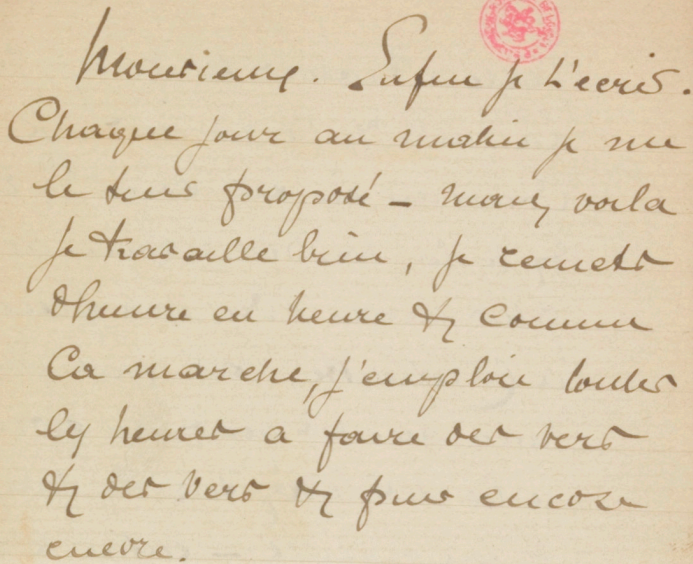 Monsieur. Enfin je t'écris.
Chaque jour au matin je me
le suis proposé – mais, voila
je travaille bien, je remets
d'heure en heure & comme
Ca marche, j'emploie toutes
les heures a faire des vers
& des vers & puis encore
encore.